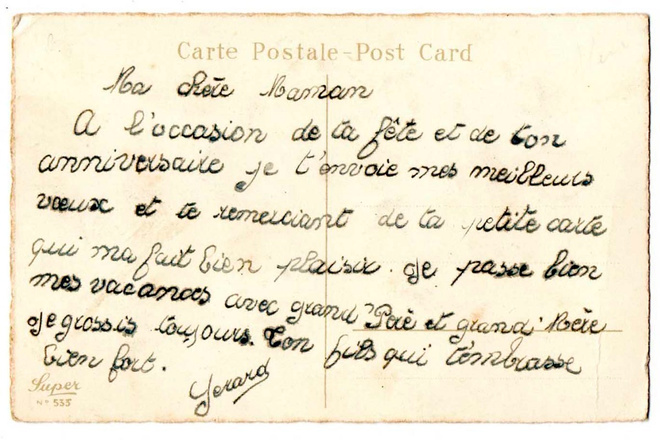 Carte Postale-Post Card
Ma chère Maman
A l'occasion de ta fête et de ton
anniversaire je t'envoie mes meilleurs
vœux et te remerciant de ta petite carte
qui ma fait bien plaisir. Je passe bien
mes vacances avec grand'Père et grand'Mère
Je grossis toujours. Ton fils qui t'embrasse
bien fort.
Gerard
Super
Nº 555